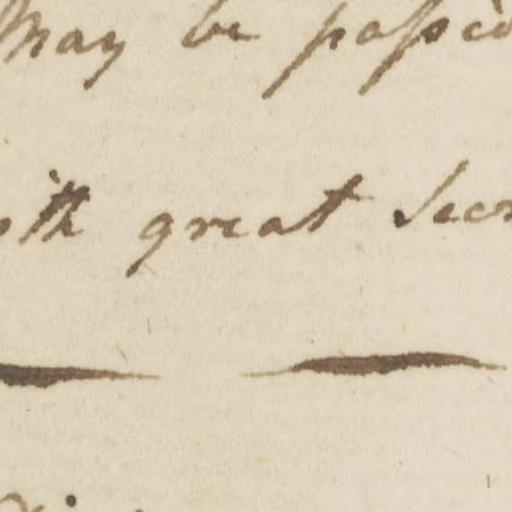 May be passed
ith great Secr